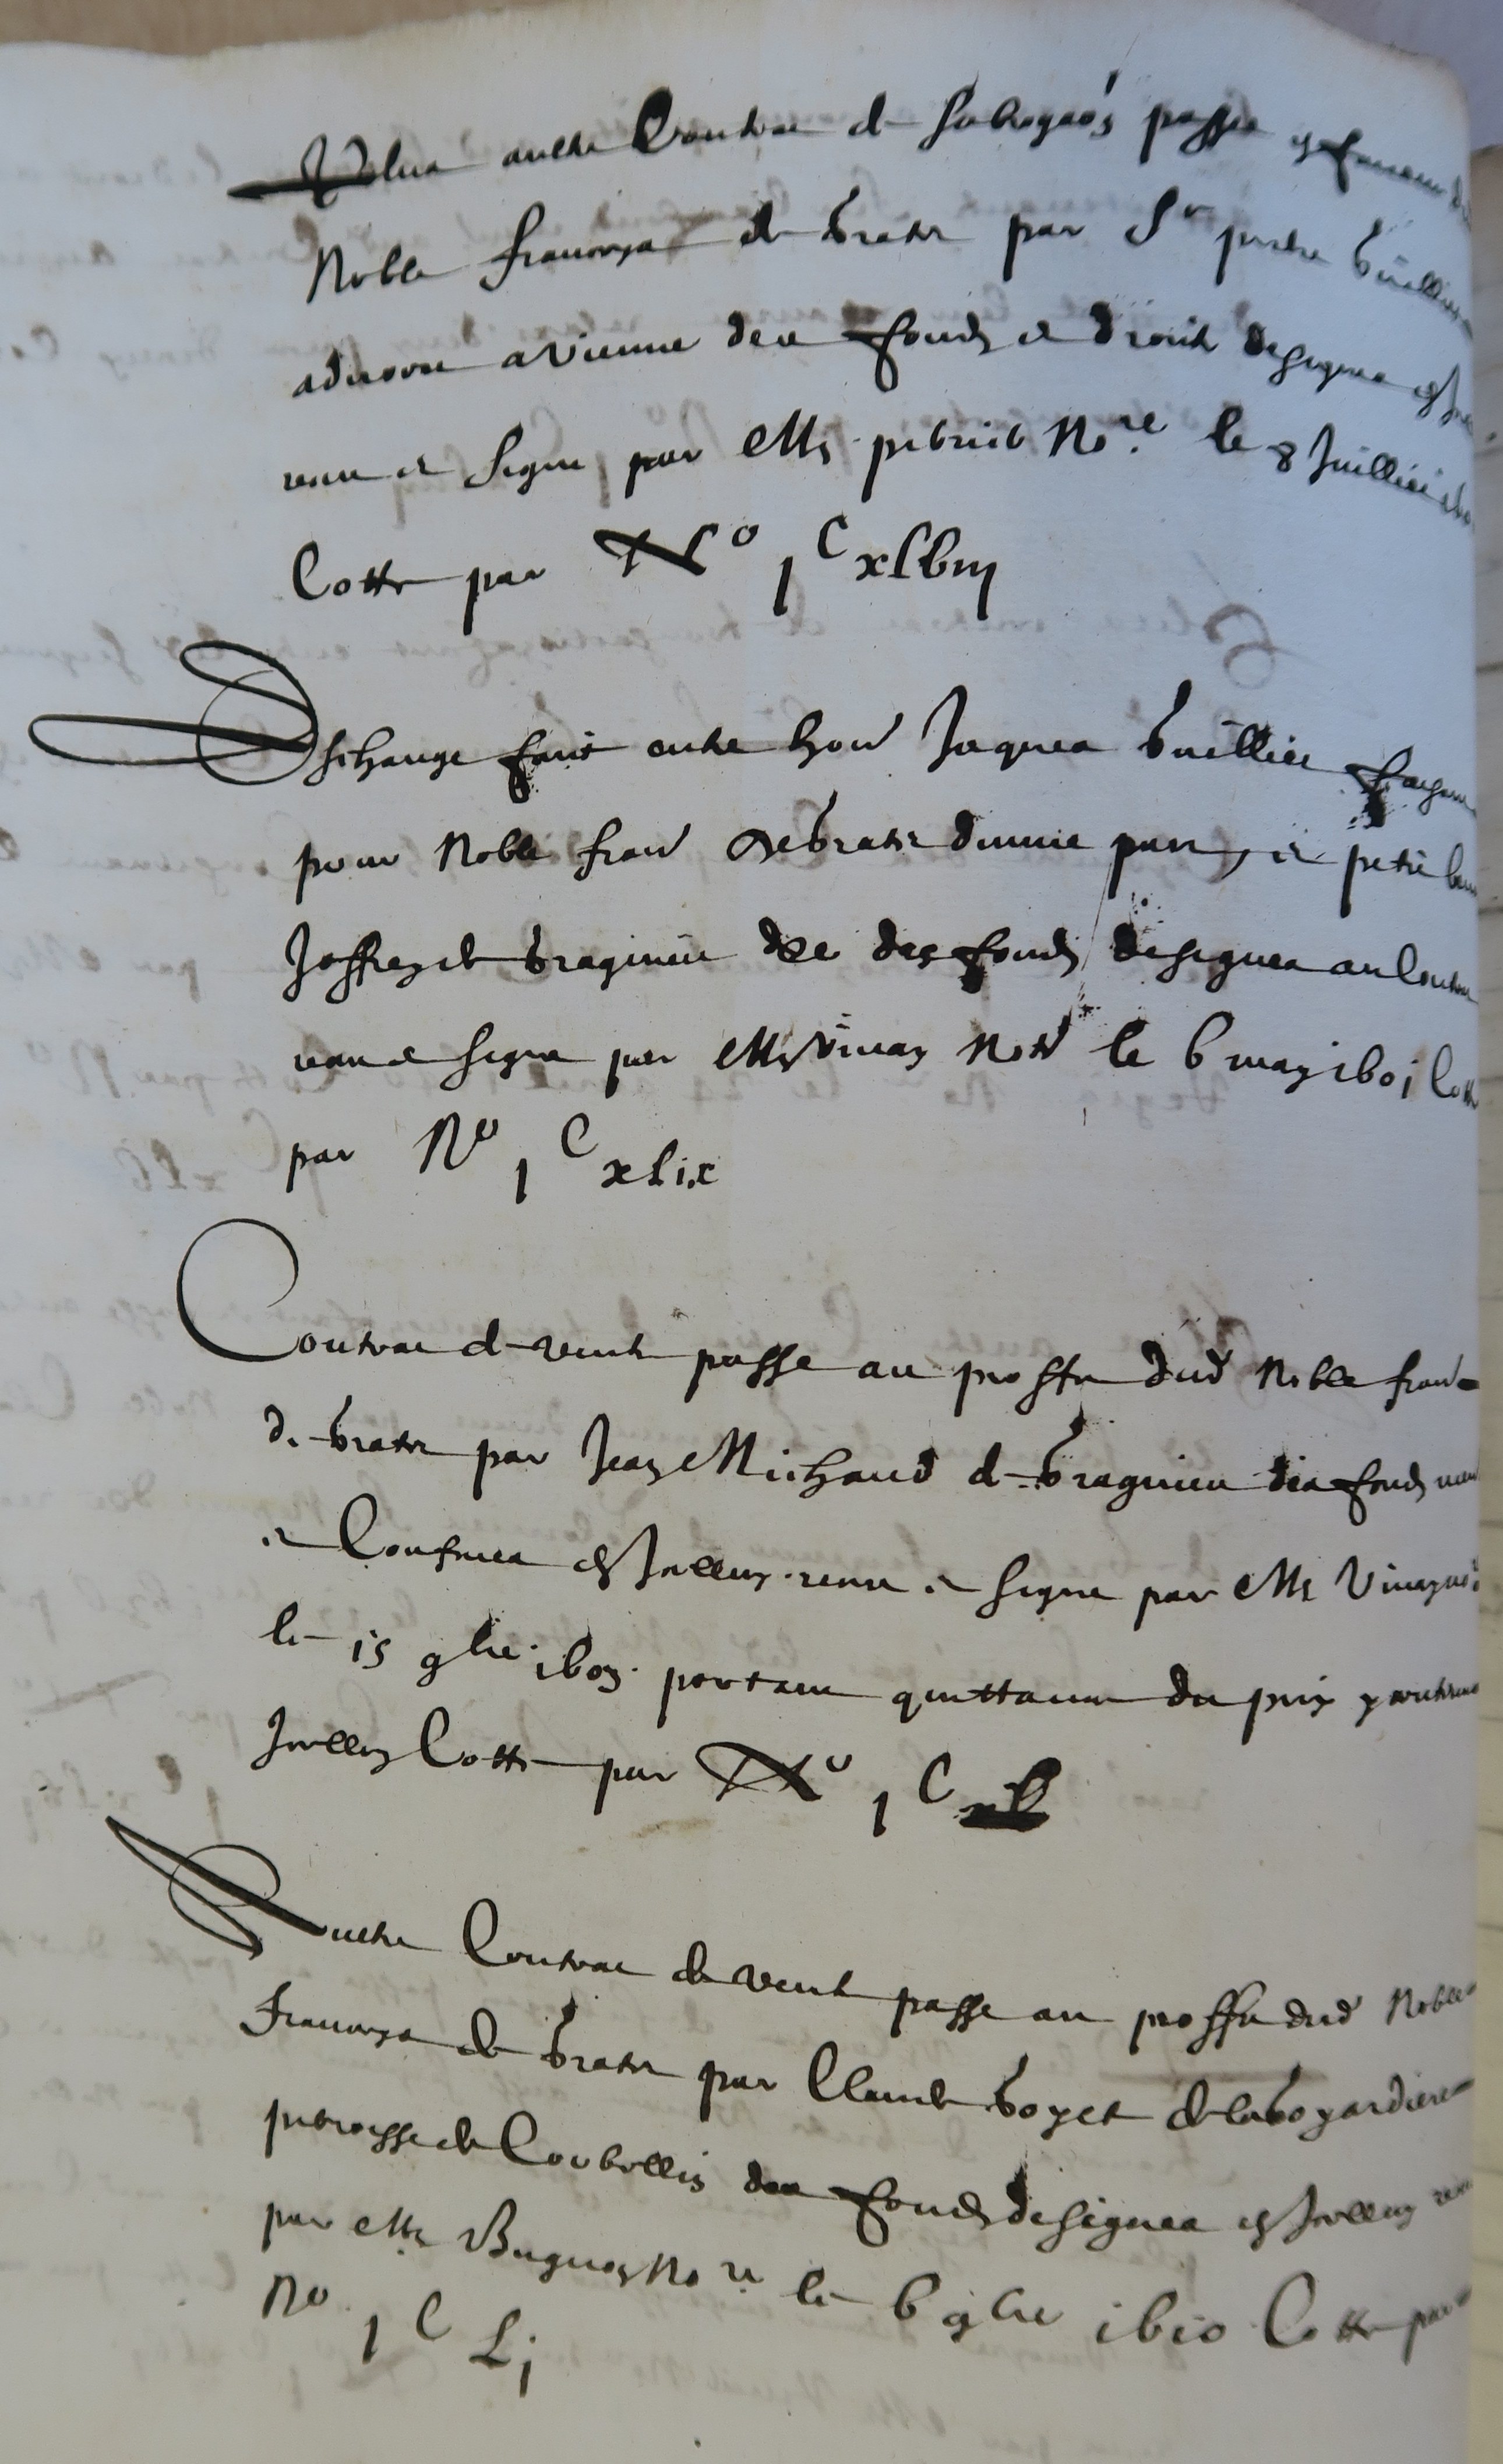 Plus aultre Contrac de subrogaon passe en faveur du
Noble francoys de brater par Sr pierre buillier
advocat a vienne des fonds et droitz designes
receu et signe par Me Nore le 8 Juillier
Cotte par No 1 C xlviij
Eschange faict entre hon Jaques buillier
pour Noble fran de brater dunne part et petit
Joffrey de bragnieu des fonds designes au Contrac
receu et signe par Me Vinay Not le 6 may 1601 Cotte
par No 1 C xlix
Contrac de vente passe au proffit dud Noble fran
de brater par Jean Michaud de bragnieu des fonds
et Confines en Icelluy receu et signe par Me Vinay
le 15 9bre portant quittance du prix
Icelluy Cotte par No 1 C L
Aultre Contrac de vente passe au proffit dud Noble
Francoys de brater par Claude boyet de la boyardiere
parroisse de Corbellin des fonds designes en Icelluy
par Me Bugnon Nore le 6 9bre 1610 Cotte par
No 1 C Lj